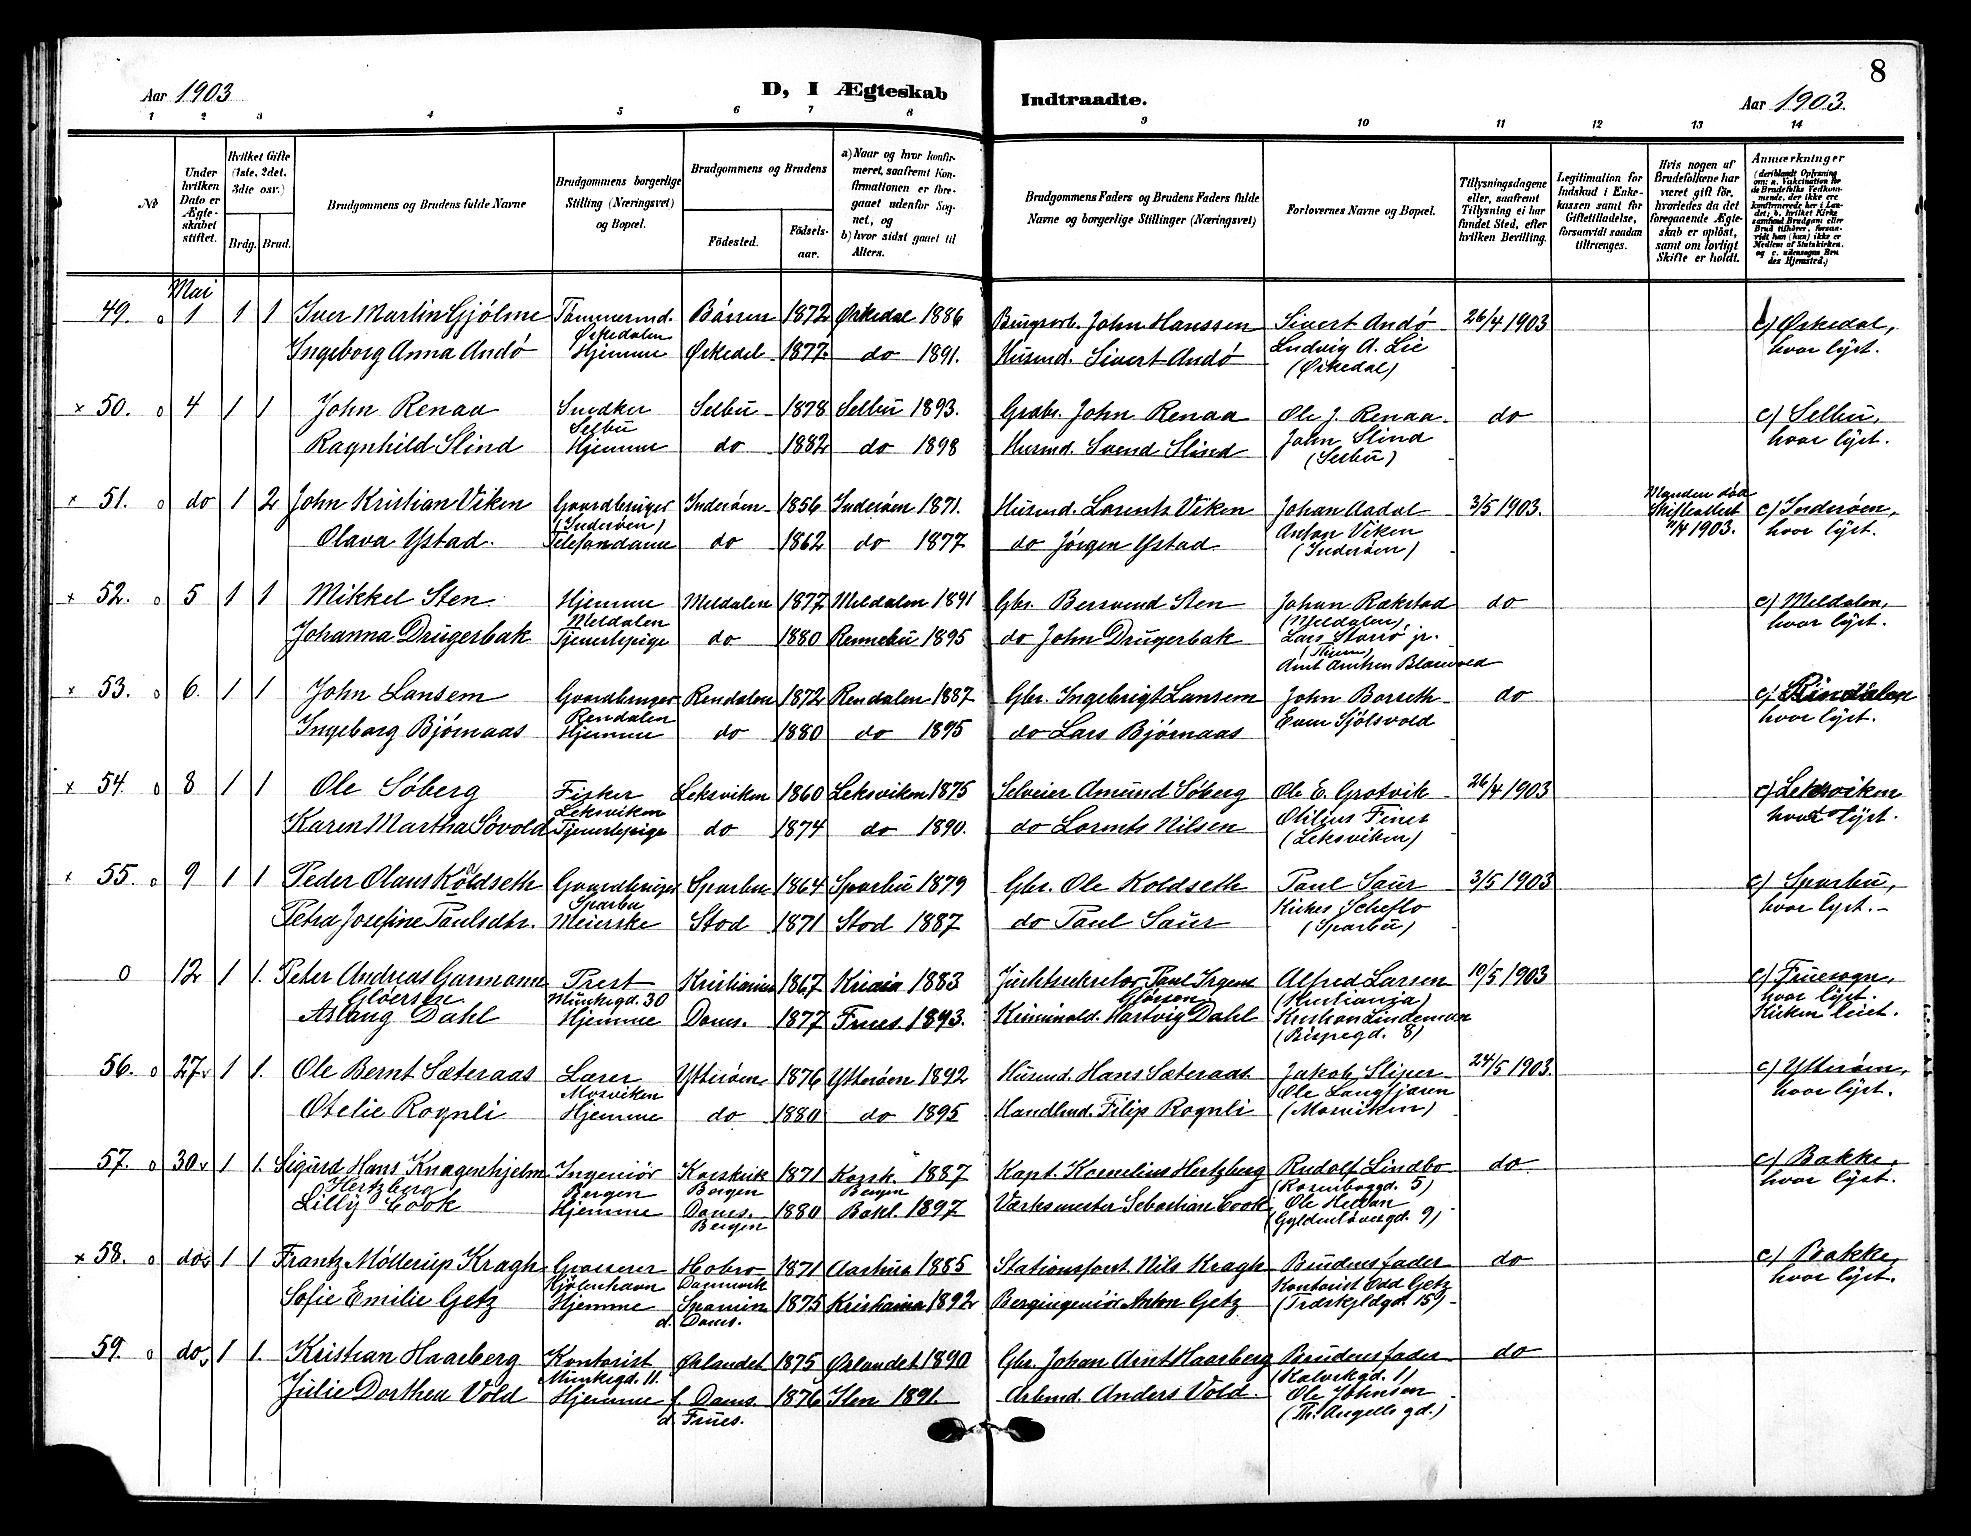 8
Aar 1903
D, I Ægteskab Indtraadte.
Aar 1903.
1 2 3 4 5 6 7 8 9 10 11 12 13 14
No
Under hvilken Dato er Ægteskabet stiftet.
Hvilket Gifte (1ste, 2det, 3die osv.)
Brdg. Brud.
Brudgommens og Brudens fulde Navne
Brudgommens borgerlige Stilling (Næringsvei) og Bopæl.
Brudgommens og Brudens
Födested. Födselsaar.
a) Naar og hvor konfirmeret, saafremt Konfirmationen er foregaaet udenfor Sognet, og
b) hvor sidst gaaet til Alters.
Brudgommens Faders og Brudens Faders fulde Navne og borgerlige Stillinger (Næringsvei)
Forlovernes Navne og Bopæl.
Tillysningsdagene eller, saafremt Tillysning ei har fundet Sted, efter hvilken Bevilling.
Legitimation for Indskud i Enkekassen samt for Giftetilladelse, forsaavidt saadan tiltrænges.
Hvis nogen af Brudefolkene har været gift för, hvorledes da det foregaaende Ægteskab er oplöst, samt om lovligt Skifte er holdt.
Anmærkninger (deriblandt Oplysning om: a. Vakcination for de Brudefolks Vedkommende, der ikke ere konfirmerede her i Landet; b. hvilket Kirkesamfund Brudgom eller Brud tilhörer, forsaavidt han (hun) ikke er Medlem af Statskirken, og c. udensogns Brudes Hjemsted.)
Mai
49. o 1 1 1 Iver Martin Gjølme Tømmermd. Børsen 1872 Ørkedal 1886 John Hanssen Sivert Andø 26/4 1903 c) Ørkedal,
Ørkedalen Ludvig A. Lie hvor lyst.
Ingeborg Anna Andø Hjemme Ørkedal 1877 do 1891. Husmd. Sivert Andø (Ørkedal)
x 50. o 4 1 1 John Renaa Snedker Selbu 1878 Selbu 1893. Grdbr. John Renaa Ole J. Renaa do c) Selbu,
Selbu John Slind hvor lyst.
Ragnhild Slind Hjemme do 1882 do 1898 Husmd. Svend Slind (Selbu)
x 51. o do 1 2 John Kristian Viken Gaardbruger Inderøen 1856 Inderøen 1871. Husmd. Lorents Viken Johan Aadal 3/5 1903. Manden død Skifteattest 11/4 1903. c) Inderøen,
(Inderøen) Anton Viken hvor lyst.
Olava Ystad. Telefondame do 1862 do 1877 do Jørgen Ystad (Inderøen)
x 52. o 5 1 1 Mikkel Sten Hjemme Meldalen 1877 Meldalen 1891 Gbr. Bersvend Sten Johan Rækstad do c) Meldalen,
Meldalen (Meldalen), hvor lyst.
Johanna Drugerbak Tjenestepige do 1880 Rennebu 1895 do John Drugerbak Lars Storrø jr.
x 53. o 6. 1 1 John Lansem Gaardbruger Rendalen 1872 Rendalen 1887 Gbr. Ingebrigt Lansem John Borseth do c) Rindalen
Rendalen Even Sjølsvold hvor lyst.
Ingeborg Bjørnaas Hjemme do 1880 do 1895 do Lars Bjørnaas
x 54. o 8 1 1 Ole Søberg Fisker Leksviken 1860 Leksviken 1875 Selveier Amund Søberg Ole E. Grotvik 26/4 1903 c) Leksviken
Leksviken Otilius Fines hvor lyst.
Karen Martha Søvold Tjenestepige do 1874 do 1890. do Lorents Nilsen (Leksviken)
x 55. o 9 1 1. Peder Olaus Koldseth Gaardbruger Sparbu 1864 Sparbu 1879 Gbr. Ole Koldseth Paul Saur 3/5 1903 c) Sparbu,
Sparbu Scheflo hvor lyst.
Petra Josefine Paulsdtr. Meierske Stod 1871 Stod 1887 do Paul Saur (Sparbu)
0 12 1 1. Peter Andreas Garmann Prest Kristiania 1867 Kria 1883 Paul Irgens Alfred Larsen 10/5 1903 c) Fruesogn,
Gløersen Munkegd. 30 (Kristiania) hvor lyst.
Aslaug Dahl Hjemme Doms. 1877 Frues 1893. Hartvig Dahl Kristian Lindeman Kirken leiet.
(Bispegd. 8)
56. o 27 1 1. Ole Bernt Sæteraas Lærer Ytterøen 1876 Ytterøen 1892 Husmd. Hans Sæteraas. Jakob Stiper 24/5 1903. c) Ytterøen,
Mosviken Ole Langtjæren hvor lyst.
Otelie Rognli Hjemme do 1880 do 1895 Handlmd. Filip Rognli (Mosviken)
57. o 30 1 1. Sigurd Hans Knagenhjelm Ingeniør Korskirk 1871 Korsk. 1887 Kapt. Kornelius Hertzberg Rudolf Lindbo do c) Bakke,
Hertzberg Bergen Bergen Bergen (Rosenborggd. 5) hvor lyst.
Lilly Cook Hjemme Doms. 1880 Bakl. 1897 Værksmester Sebastian Cook Ole Hedan
Bergen (Gyldenløvesgd. 9)
x 58. o do 1 1 Frantz Møllerup Kragh Grosserer Hobro 1871 Aarhus 1885 Stationsforst. Nils Kragh Brudens fader do c) Bakke,
Kjøbenhavn Danmark Kontorist Odd Getz hvor lyst.
Sofie Emilie Getz Hjemme Spanien 1875 Kristiania 1892 Bergingeniør Anton Getz
d. Doms.
59. o do 1 1. Kristian Haarberg Kontorist Ørlandet 1875 Ørlandet 1890 Gbr. Johan Arnt Haarberg Brudens fader do
Munkegd. 11. (Kalvskgd. 1)
Julie Dorthea Vold Hjemme f. Doms. 1876 Ilen 1891. Arbmd. Anders Vold. Ole Johnsen
d. Frues. (Th. Angells gd.)